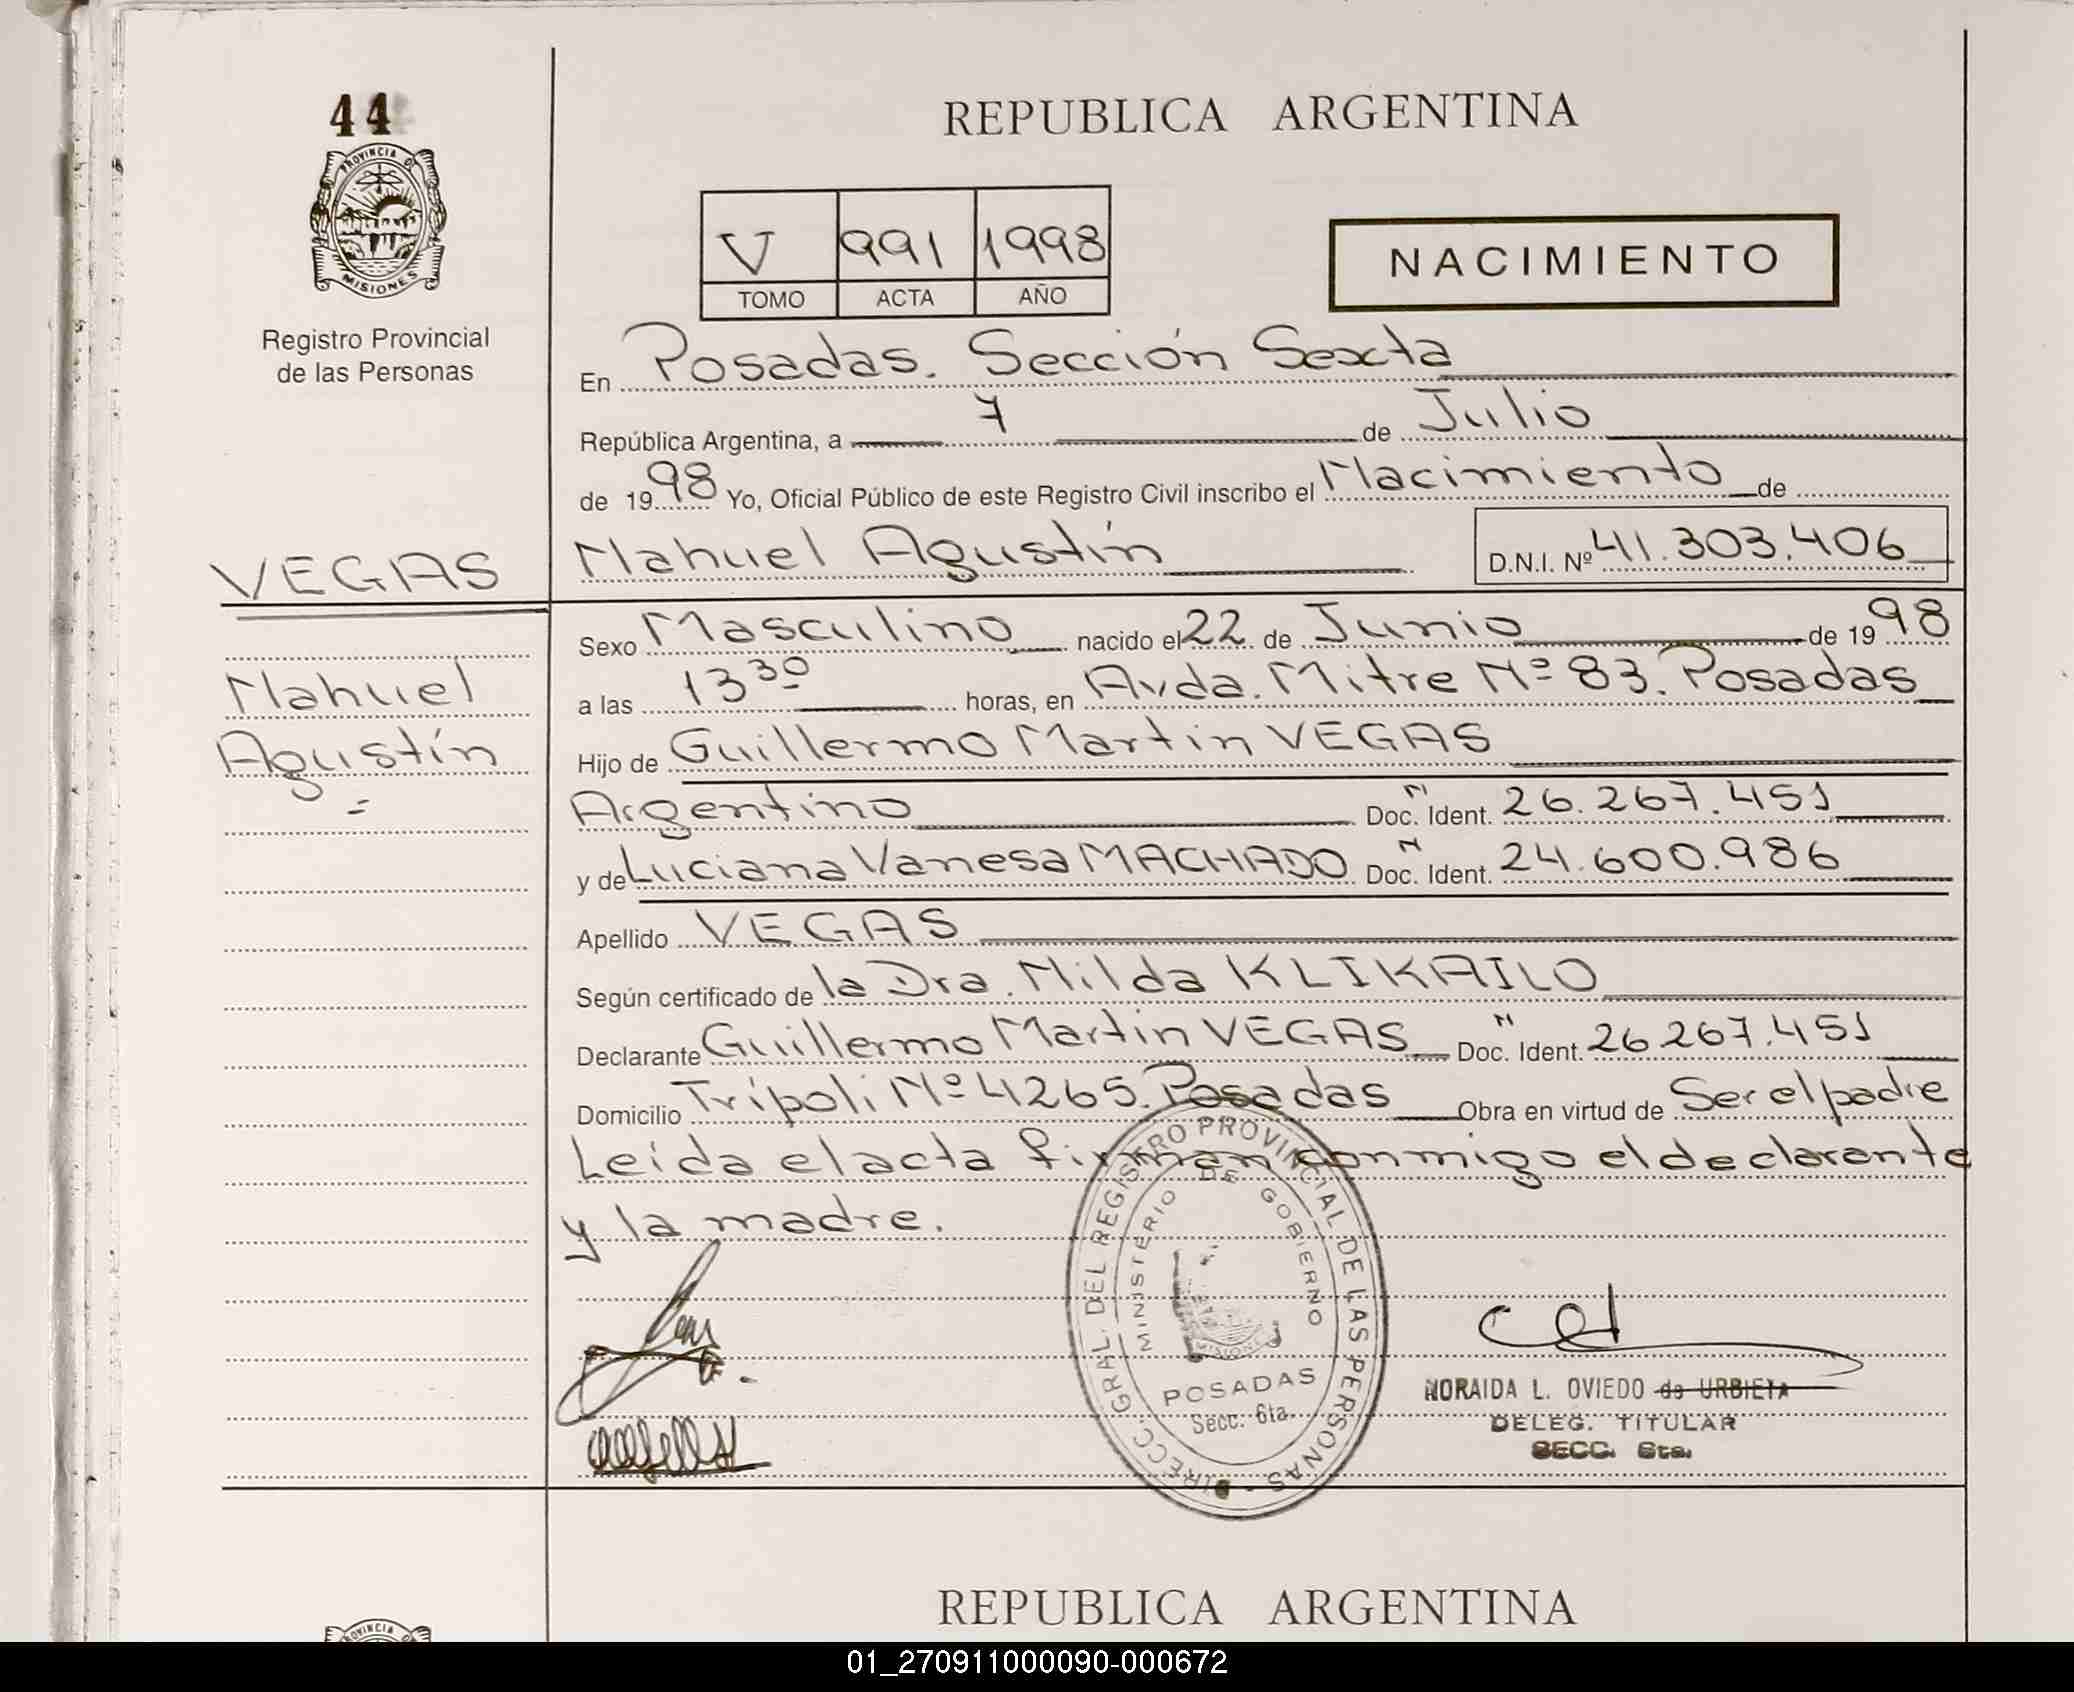 44
PROVINCIA DE
MISIONES
Registro Provincial
de las Personas
REPUBLICA ARGENTINA
V 991 1998
TOMO ACTA AÑO
NACIMIENTO
En Posadas. Sección Sexta
República Argentina, a 7 de Julio
de 1998 Yo, Oficial Público de este Registro Civil inscribo el Nacimiento de
VEGAS Nahuel Agustín D.N.I. Nº 41.303.406
Sexo Masculino nacido el 22 de Junio de 1998
Nahuel a las 13 30 horas, en Avda. Mitre Nº 83. Posadas
Agustín Hijo de Guillermo Martin VEGAS
= Argentino Doc. N Ident. 26.267.451
y de Luciana Vanesa MACHADO Doc. N Ident. 24.600.986
Apellido VEGAS
Según certificado de la Dra. Nilda KLIKAILO
Declarante Guillermo Martin VEGAS Doc. N Ident. 26.267.451
Domicilio Trípoli Nº 4265. Posadas Obra en virtud de Ser el padre
Leída el acta firman conmigo el declarante
y la madre.
DIRECC. GRAL. DEL REGISTRO PROVINCIAL DE LAS PERSONAS -
MINISTERIO DE GOBIERNO
MISIONES
POSADAS
Secc: 6ta.
NORAIDA L. OVIEDO de URBIETA
DELEG. TITULAR
SECC. 6ta.
REPUBLICA ARGENTINA
PROVINCIA DE
01_270911000090-000672